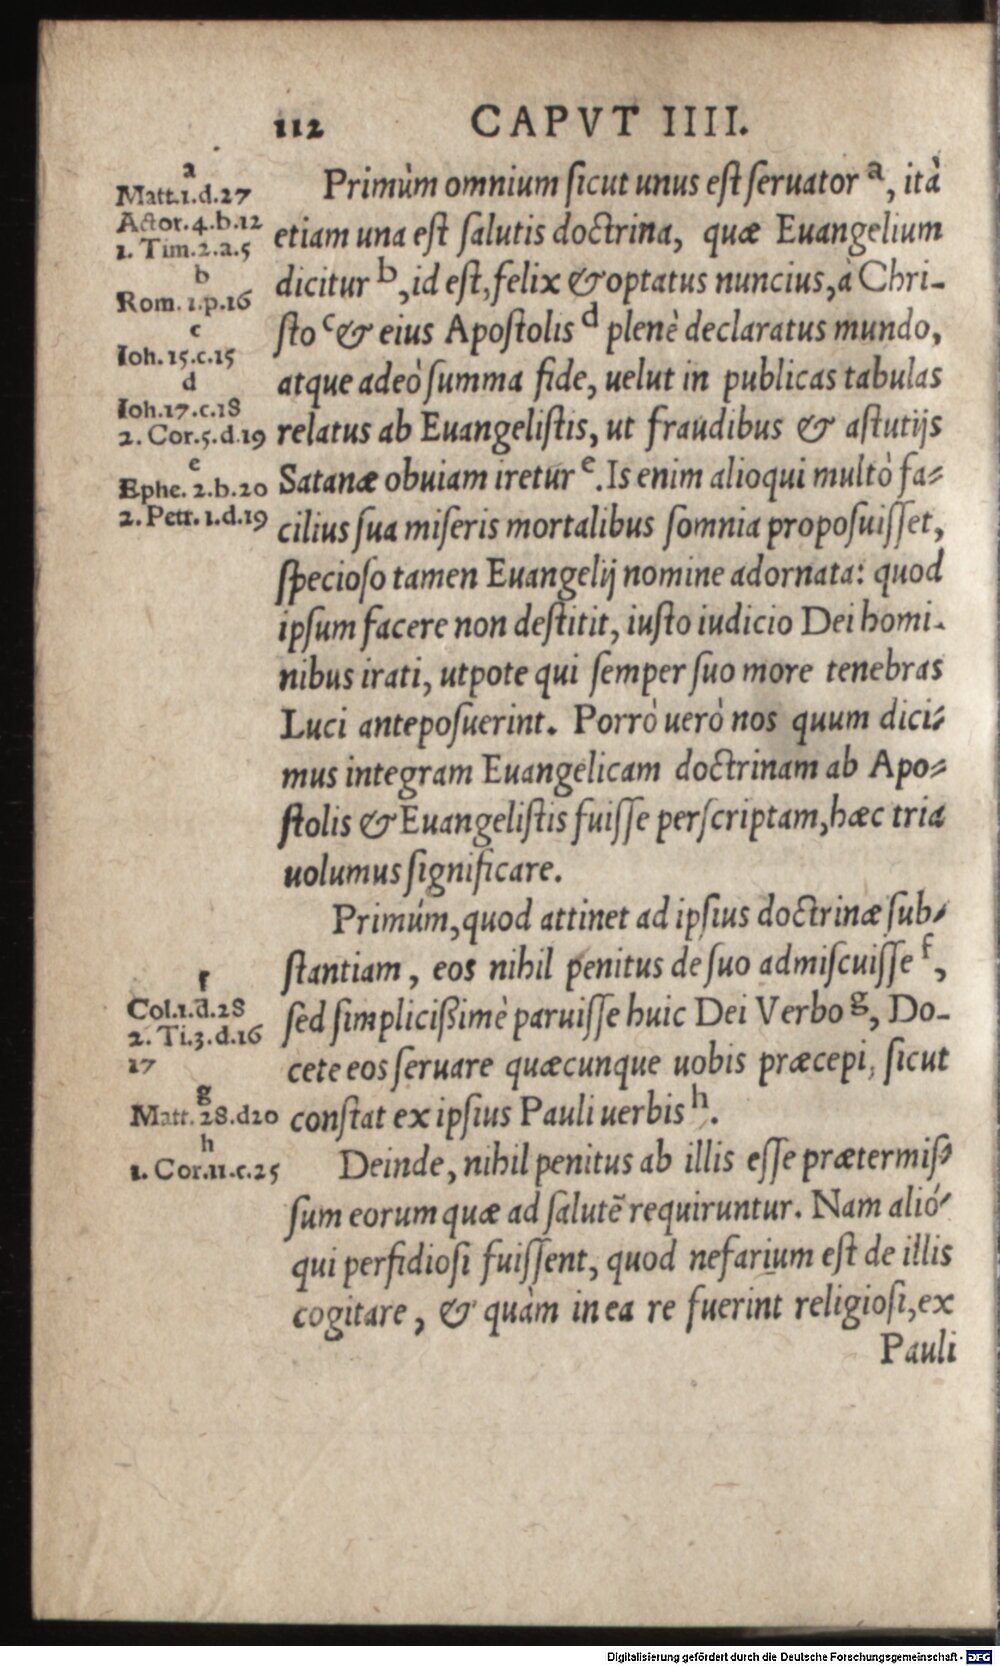 112 CAPVT IIII.
a
Matt.1.d.27
Actor.4.b.12
1. Tim.2.a.5
b
Rom. 1.p.16
c
Ioh.15.c.15
d
Ioh.17.c.18
2. Cor.5.d.19
e
Ephe. 2.b.20
2. Petr. 1.d.19
Primùm omnium ſicut unus eſt ſeruator a, ità
etiam una eſt ſalutis doctrina, quæ Euangelium
dicitur b, id eſt, felix & optatus nuncius, à Chri-
ſto c & eius Apoſtolis d plenè declaratus mundo,
atque adeò ſumma fide, uelut in publicas tabulas
relatus ab Euangeliſtis, ut fraudibus & aſtutijs
Satanæ obuiam iretur e. Is enim alioqui multò fa-
cilius ſua miſeris mortalibus ſomnia propoſuiſſet,
ſpecioſo tamen Euangelij nomine adornata: quod
ipſum facere non deſtitit, iuſto iudicio Dei homi-
nibus irati, utpote qui ſemper ſuo more tenebras
Luci antepoſuerint. Porrò uerò nos quum dici-
mus integram Euangelicam doctrinam ab Apo-
ſtolis & Euangeliſtis fuiſſe perſcriptam, hæc tria
uolumus ſignificare.
f
Col.1.d.28
2. Ti.3.d.16
17
g
Matt. 28.d20
h
1. Cor.11.c.25
Primúm, quod attinet ad ipſius doctrinæ ſub-
ſtantiam, eos nihil penitus de ſuo admiſcuiſſe f,
ſed ſimplicißimè paruiſſe huic Dei Verbo g, Do-
cete eos ſeruare quæcunque uobis præcepi, ſicut
conſtat ex ipſius Pauli uerbis h.
Deinde, nihil penitus ab illis eſſe prætermiſ-
ſum eorum quæ ad ſalutē requiruntur. Nam alió-
qui perfidioſi fuiſſent, quod nefarium eſt de illis
cogitare, & quàm in ea re fuerint religioſi, ex
Pauli
Digitalisierung gefördert durch die Deutsche Forschungsgemeinschaft - DFG